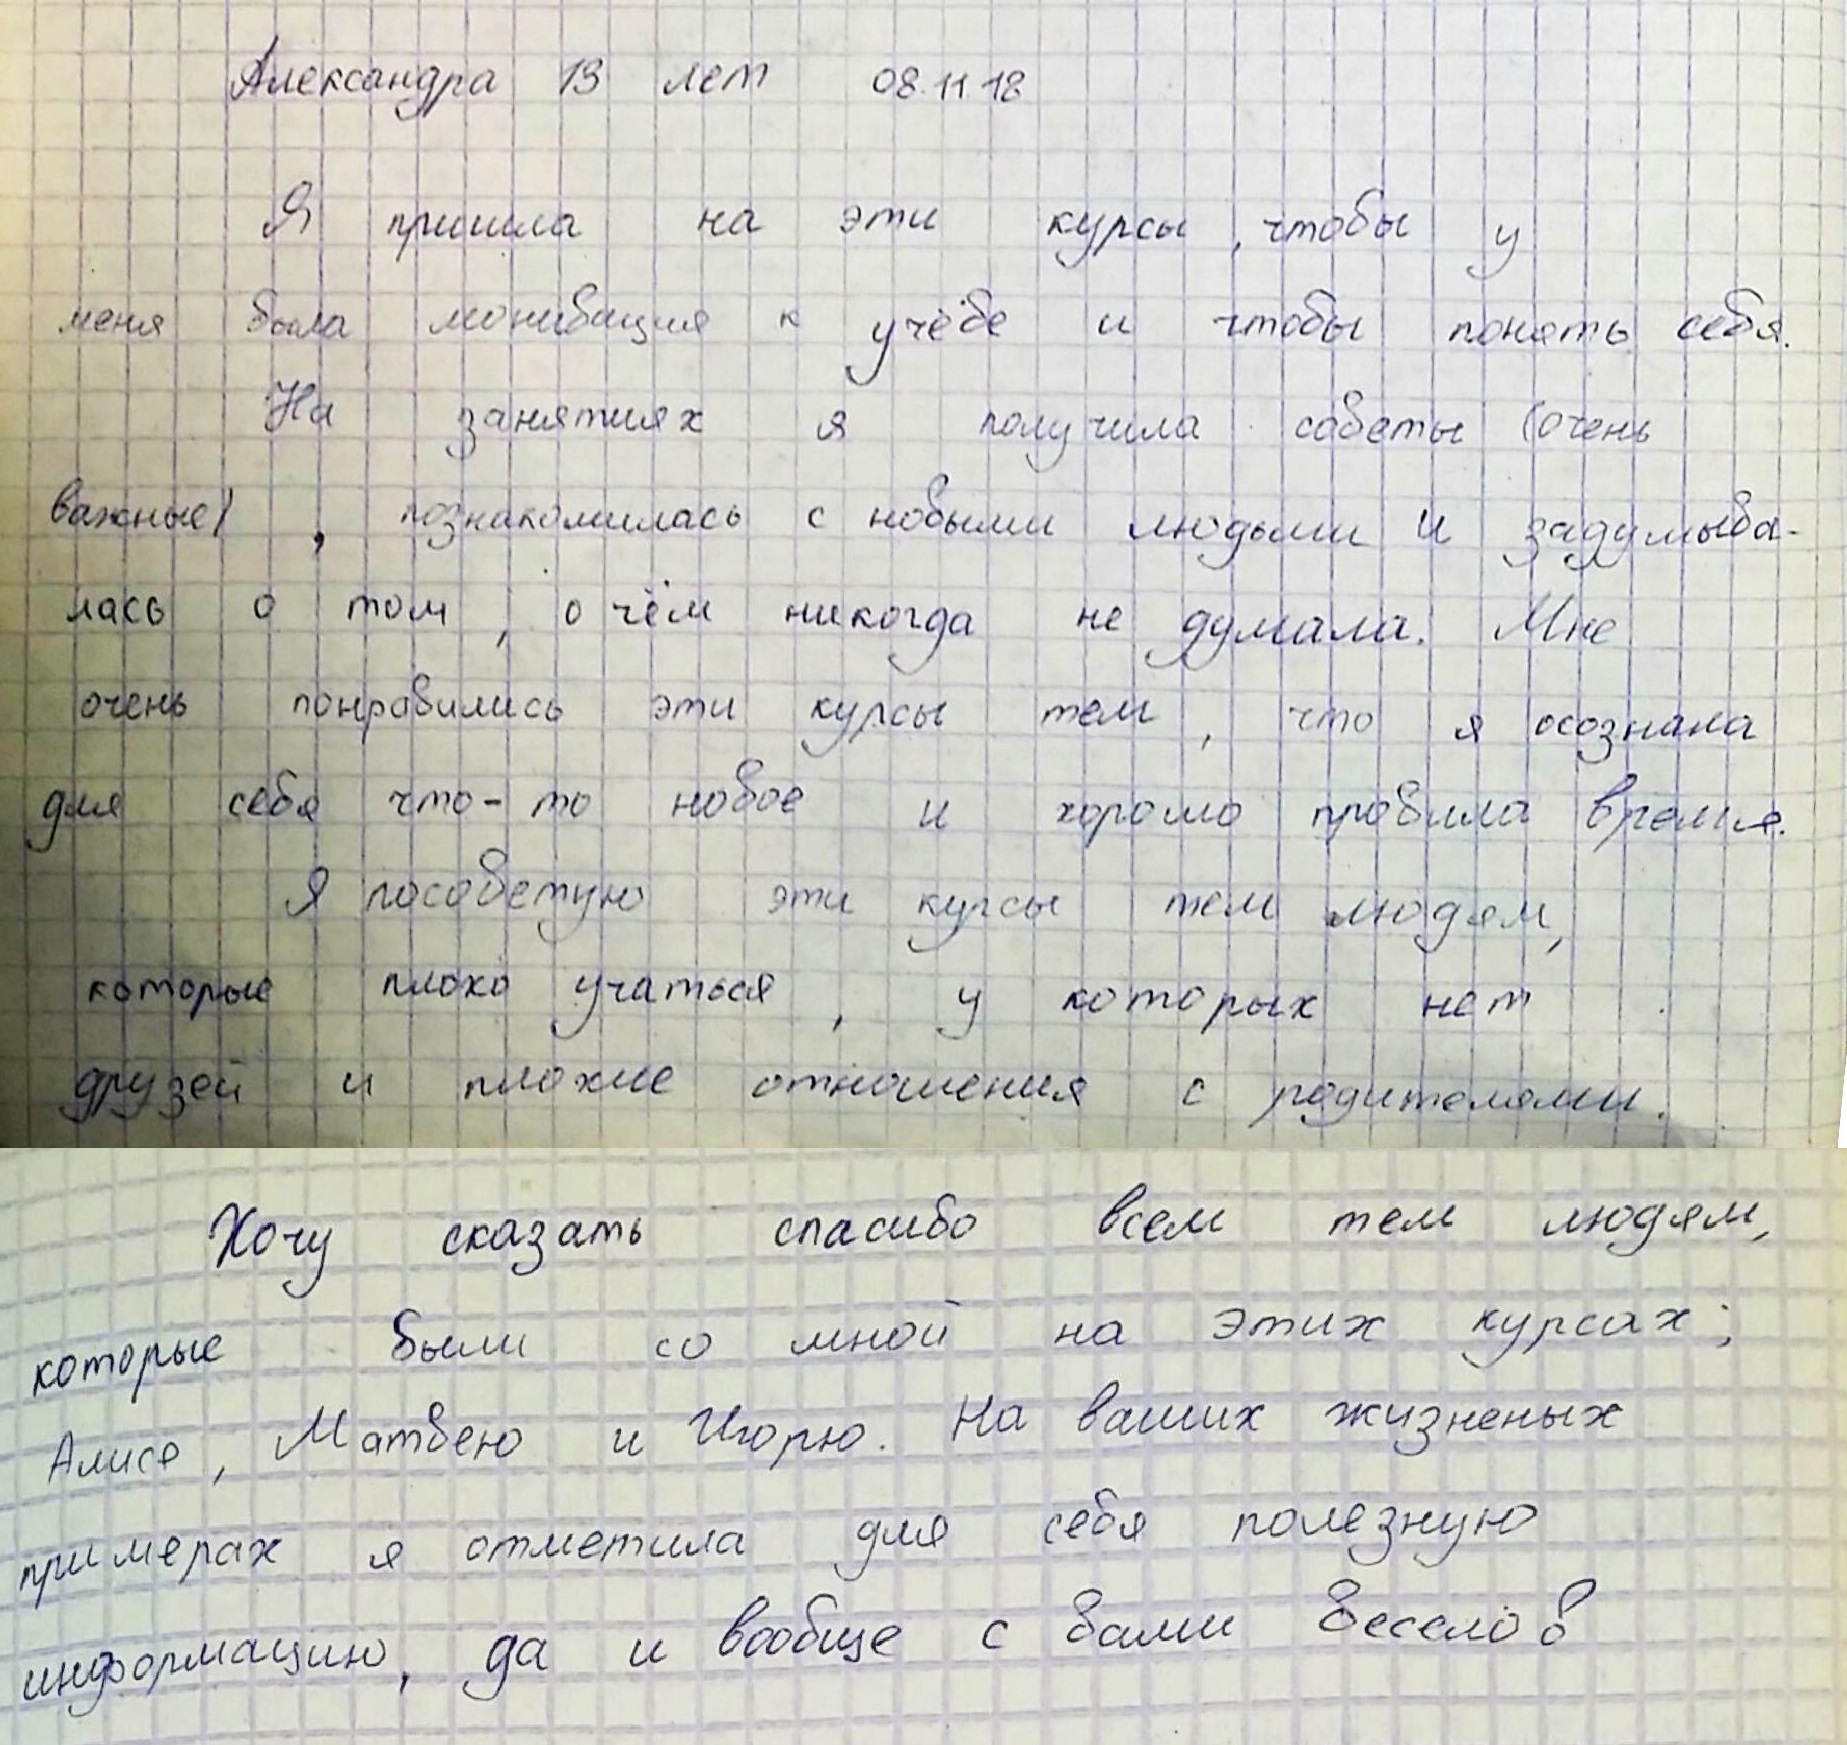 Александра 13 лет 08.11.18
Я пришла на эти курсы, чтобы у
меня была мотивация к учёбе и чтобы понять себя.
На занятиях я получила советы (очень
важные), познакомилась с новыми людьми и задумыва-
лась о том, о чём никогда не думала. Мне
очень понравились эти курсы тем, что я осознала
для себя что-то новое и хорошо провила время.
Я посоветую эти курсы тем людям,
которые плохо учаться, у которых нет
друзей и плохие отношения с родителями.
Хочу сказать спасибо всем тем людям,
которые были со мной на этих курсах;
Алисе, Матвею и Игорю. На ваших жизненых
примерах я отметила для себя полезную
информацию, да и вообще с вами весело!